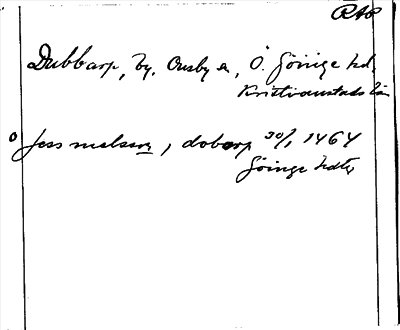 RAP
Dubbarp, by. Örsby sn, Ö. Göinge hd,
Kristianstads län
Jess nielsson, dobarp 20/1 1464
Göinge hdtg